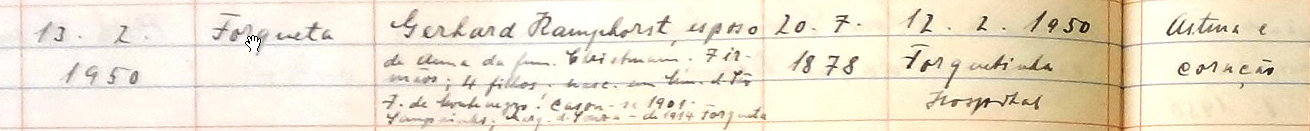 13. 2. Forqueta Gerhard Kamphorst, esposo 20. 7. 12. 2. 1950 Astma e
1950 de Anna da fam. Christmann. 7 ir- 1878 Forquetinha coração
mãos; 4 filhos. nasc. em
F. de Montenegro. Casou-se 1901. Hospital
de 1914 Forqueta